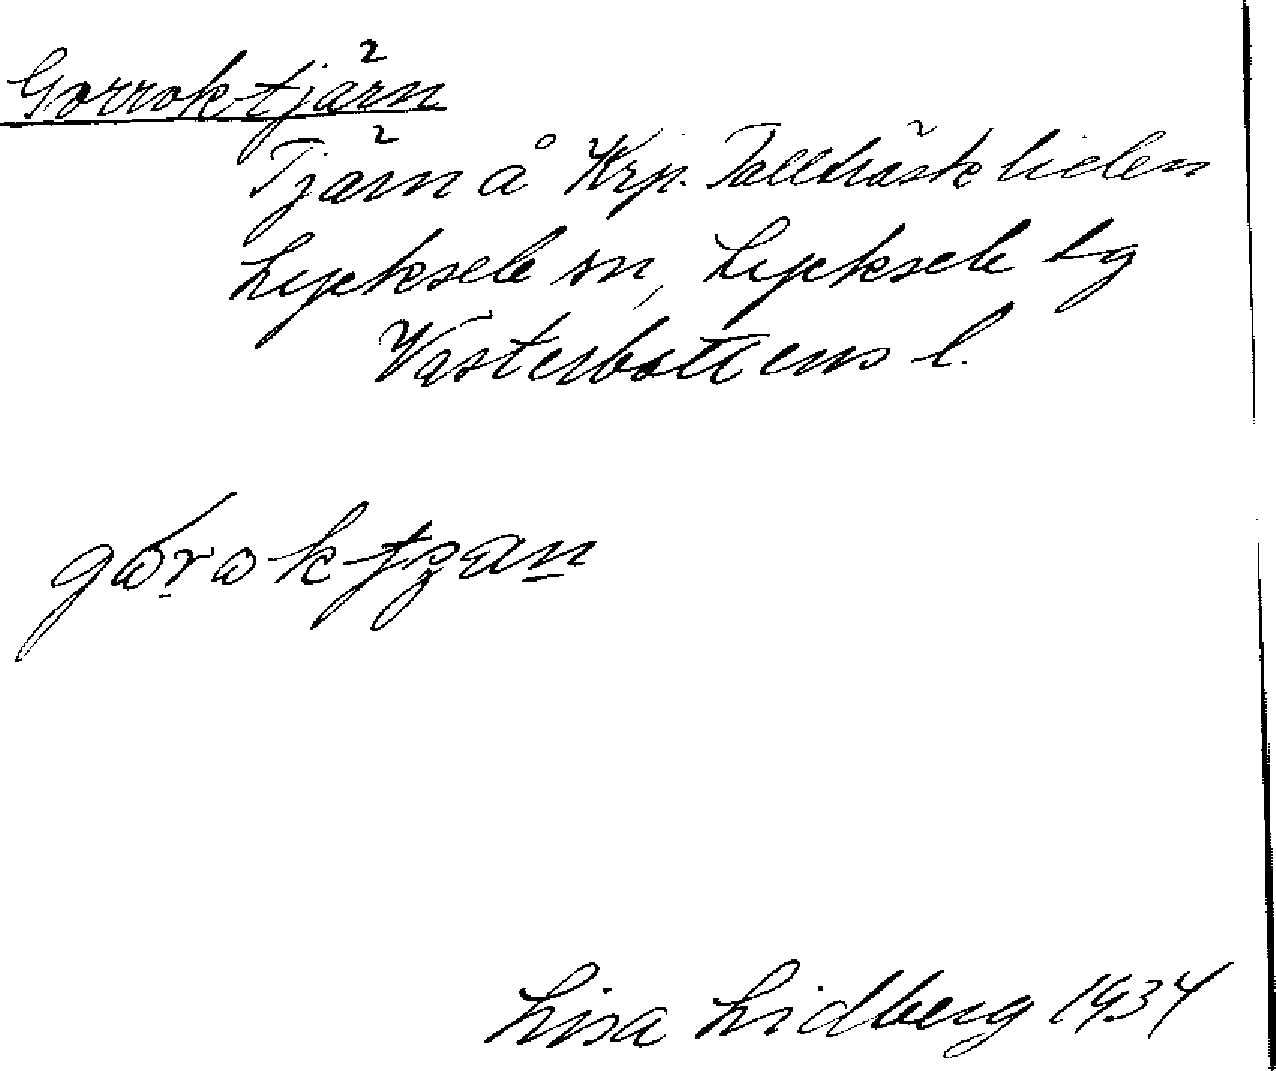 Gorrok-tjärn
Tjärn å Krp. Tallträskliden
Lycksele sn, Lycksele tg
Västerbottens l.
górok-tȥan
Lisa Lidberg 1934